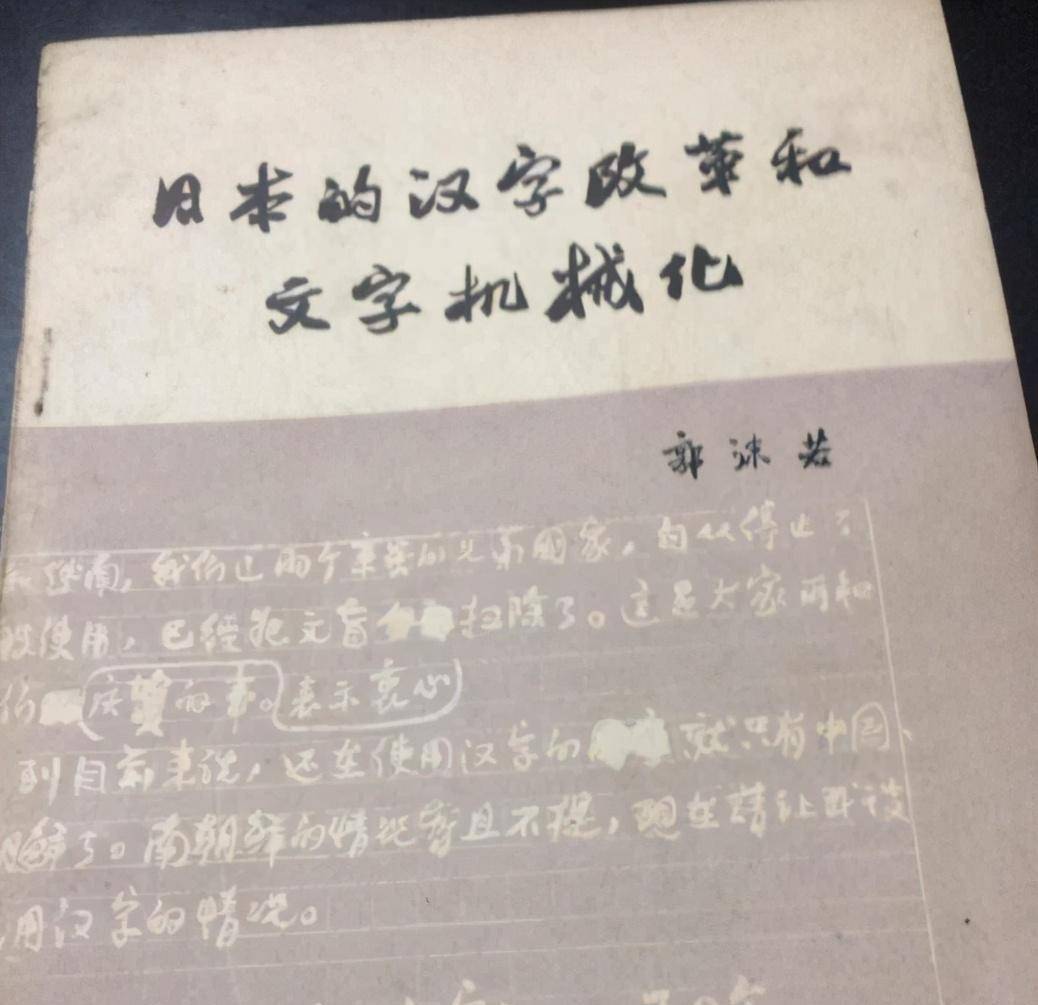 日本的汉字改革和
文字机械化
郭沫若
和越南,我们这两个亲密的兄弟国家,自从停止了
使用,已经把文盲扫除了。这是大家所知
们庆贺的事。表示衷心
到目前来说,还在使用汉字的就只有中国、
鲜了。南朝鲜的情况暂且不提,现在请让我谈
用汉字的情况。